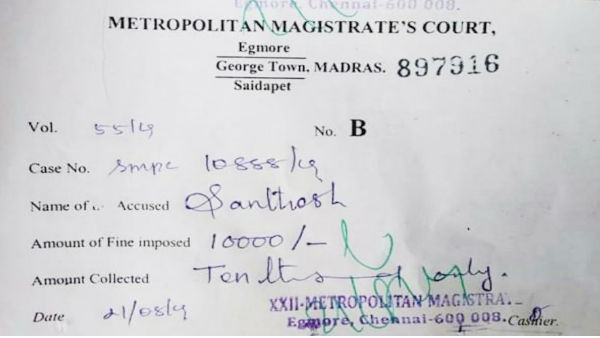 Egmore, Chennai-600 008.
METROPOLITAN MAGISTRATE'S COURT,
Egmore
George Town, MADRAS. 897916
Saidapet
Vol. 55/19
No. B
Case No. smpc 10888/19
Name of Accused Santhosh
Amount of Fine imposed 10000/-
Amount Collected Ten only.
Date 21/08/19
XXII-METROPOLITAN MAGISTRA
Egmore, Chennai-600 008. Cashier.